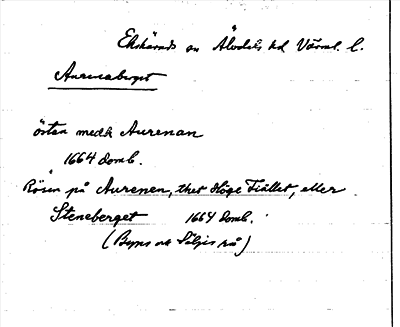 Ekshärads sn Älvdals hd Värml. l.
Aurenaberget
östan medh Aurenan
1664 domb.
Rösen på Aurenen, thet Höge Fiället, eller
Steneberget 1664 domb.
(Byns och Säljes rå)